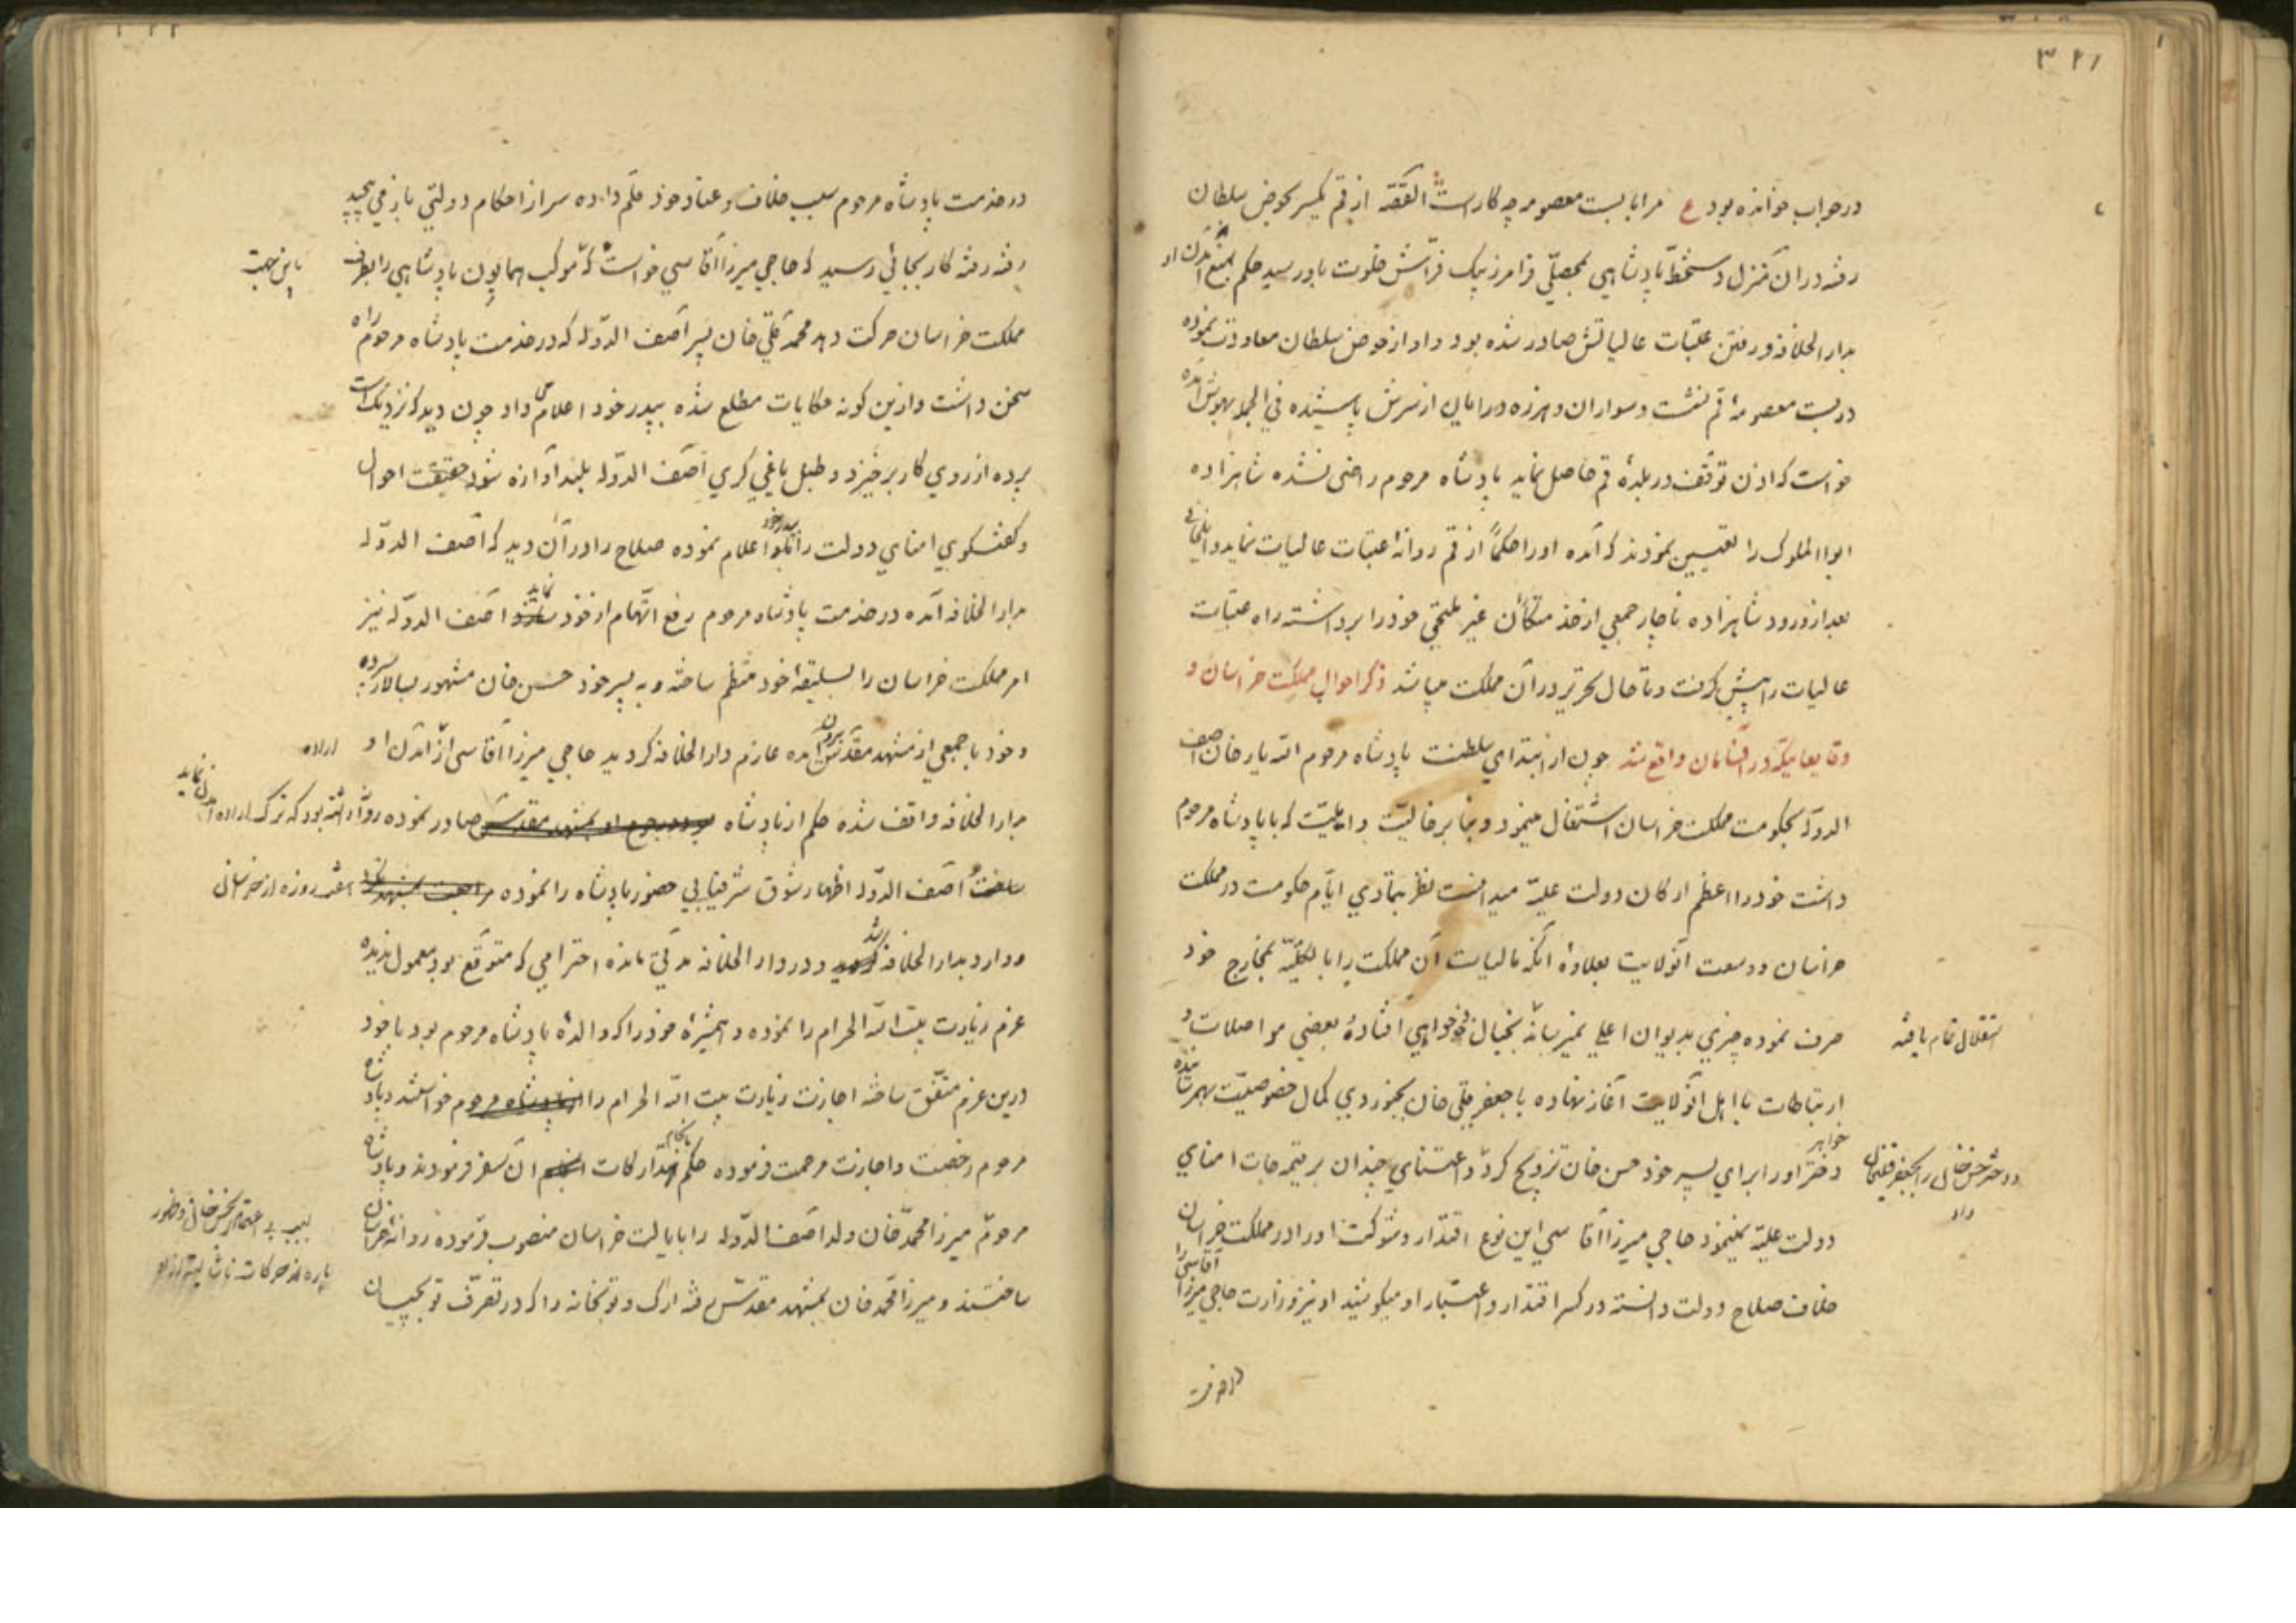 ۳۲۱
در جواب خوانده بود ع مرا با بست معصومه چه کار است القصّه از قم یکسر بحوض سلطان
رفته در آن منزل دستخطّ پادشاهی بمحصّلی فرامرز بیک فرّاش خلوت باو رسید حکم بمنع آمدن او
بدار الخلافه و رفتن عتبات عالیاتش صادر شده بود و او از حوض سلطان معاودت نموده
در بست معصومهٔ قم نشست و سواران و هرزه درایان از سرش پاشیده فی الجمله بهوش آمده
خواست که اذن توقّف در بلدهٔ قم حاصل نماید پادشاه مرحوم راضی نشده شاهزاده
ابو الملوک را تعیین نمودند که آمده او را حکماً از قم روانهٔ عتبات عالیات نماید و ایلخانی
بعد از ورود شاهزاده ناچار جمعی از خدمتکاران غیر ملتحی خود را برداشته راه عتبات
عالیات را پیش گرفت و تا حال تحریر در آن مملکت میباشد ذکر احوال مملکت خراسان و
وقایعاتیکه در آنسامان واقع شد چون از ابتدای سلطنت پادشاه مرحوم الله یار خان آصف
الدوله بحکومت مملکت خراسان اشتغال مینمود و بنا بر خالیّت و اهلیّت که با پادشاه مرحوم
داشت خود را اعظم ارکان دولت علیّه میدانست نظر بتمادی ایّام حکومت در مملکت
خراسان و وسعت آنولایت بعلاوهٔ آنکه مالیات آن مملکت را بالکلیّه بمخارج خود
صرف نموده چیزی بدیوان اعلی نمیرسانه بخیال خودخواهی افتاده بعضی مواصلات و
استقلال تمام یافته
ارتباطات با اهل آنولایت آغاز نهاده با جعفر قلی خان بجنوردی کمال خصوصیّت بهم رسانیده
خواهر
دختر او را برای پسر خود حسن خان تزویج کرد و اعتنای چندان بر نیمه جات امنای
و دختر حسن خان را بجعفر قلیخان
داد
دولت علیّه نمینمود حاجی میرزا آقاسی این نوع اقتدار و شوکت او را در مملکت خراسان
خلاف صلاح دولت دانسته در کسر اقتدار و اعتبار او میکوشید او نیز وزارت حاجی میرزا آقاسی را
در خدمت پادشاه مرحوم سبب خلاف و عناد خود قلم داده سر از احکام دولتی باز می پیچید
رفته رفته کار بجائی رسید که حاجی میرزا آقاسی خواست که موکب همایون پادشاهی را بطرف
باین جهت
مملکت خراسان حرکت دهد محمد قلی خان پسر آصف الدّوله که در خدمت پادشاه مرحوم راه
سخن داشت و ازین گونه حکایات مطلع شده بپدر خود اعلام می داد چون دید که نزدیک است
پرده از روی کار برخیزد و طبل یاغی گری آصف الدّوله بلند آوازه شود حقیقت احوال
و گفتگوی امنای دولت را بپدر خود اعلام نموده صلاح را در آن دید که آصف الدّوله
بدار الخلافه آمده در خدمت پادشاه مرحوم رفع اتّهام از خود نماید آصف الدوله نیز
امر مملکت خراسان را بسلیقهٔ خود منتظم ساخته و به پسر خود حسن خان مشهور بسالار سپرده
و خود با جمعی از مشهد مقدّس بیرون آمده عازم دار الخلافه گردید حاجی میرزا آقاسی از آمدن او
اراده
بدار الخلافه واقف شده حکم از پادشاه صادر نموده روّانه داشته بود که ترک اراده آمدن نماید
آصف الدّوله اظهار شوق شرفیابی حضور پادشاه را نموده
وارد بدار الخلافه شد و در دار الخلافه مدّتی مانده احترامی که متوقّع بود معمول ندیده
عزم زیارت بیت الله الحرام را نموده و همشیرهٔ خود را که والدهٔ پادشاه مرحوم بود با خود
درین عزم متّفق ساخته اجازت زیارت بیت الله الحرام را از پادشاه مرحوم خواستند و پادشاه
مرحوم رخصت و اجازت مرحمت فرموده حکم بتدارکات انجام آن سفر فرمودند و پادشاه
مرحوم میرزا محمّد خان ولد آصف الدّوله را بایالت خراسان منصوب فرموده روانه خراسان
ساختند و میرزا محمّد خان بمشهد مقدّس رفته ارک و توپخانه را که در تصرّف توپچیان